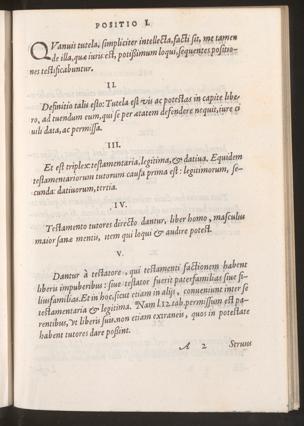 POSITIO I.
QVanuis tutela, simpliciter intellecta, facti sit, me tamen
de illa, quæ iuris est, potissimum loqui, sequentes positio-
nes testificabuntur.
II.
Definitio talis esto: Tutela est vis ac potestas in capite libe-
ro, ad tuendum eum, qui se per ætatem defendere nequit, iure ci
uili data, ac permissa.
III.
Et est triplex: testamentaria, legitima, & datiua. Equidem
testamentariorum tutorum causa prima est: legitimorum, se-
cunda: datiuorum, tertia.
IV.
Testamento tutores directo dantur, liber homo, masculus
maior sanæ mentis, item qui loqui & audire potest.
V.
Dantur à testatore, qui testamenti factionem habent
liberis impuberibus: siue testator fuerit paterfamilias siue fi-
liusfamilias. Et in hoc, sicut etiam in alijs, conueniunt inter se
testamentaria & legitima. Nam l.12 tab. permissum est pa-
rentibus, vt liberis suis, non etiam extraneis, quos in potestate
habent tutores dare possint.
A 2 Seruus